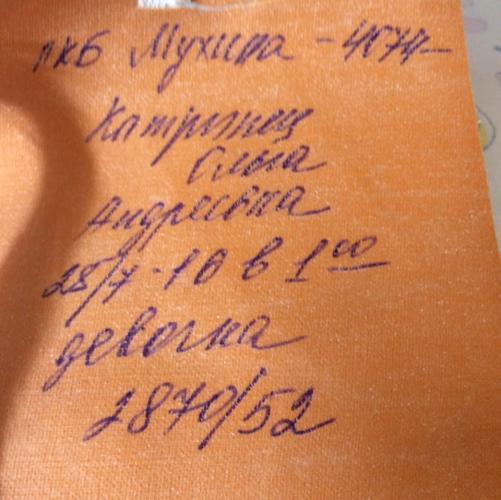 ПКБ Мухина - 4574
Катрынец
Ольга
Андреевна
28/7-10 в 1⁰⁰
девочка
2870/52